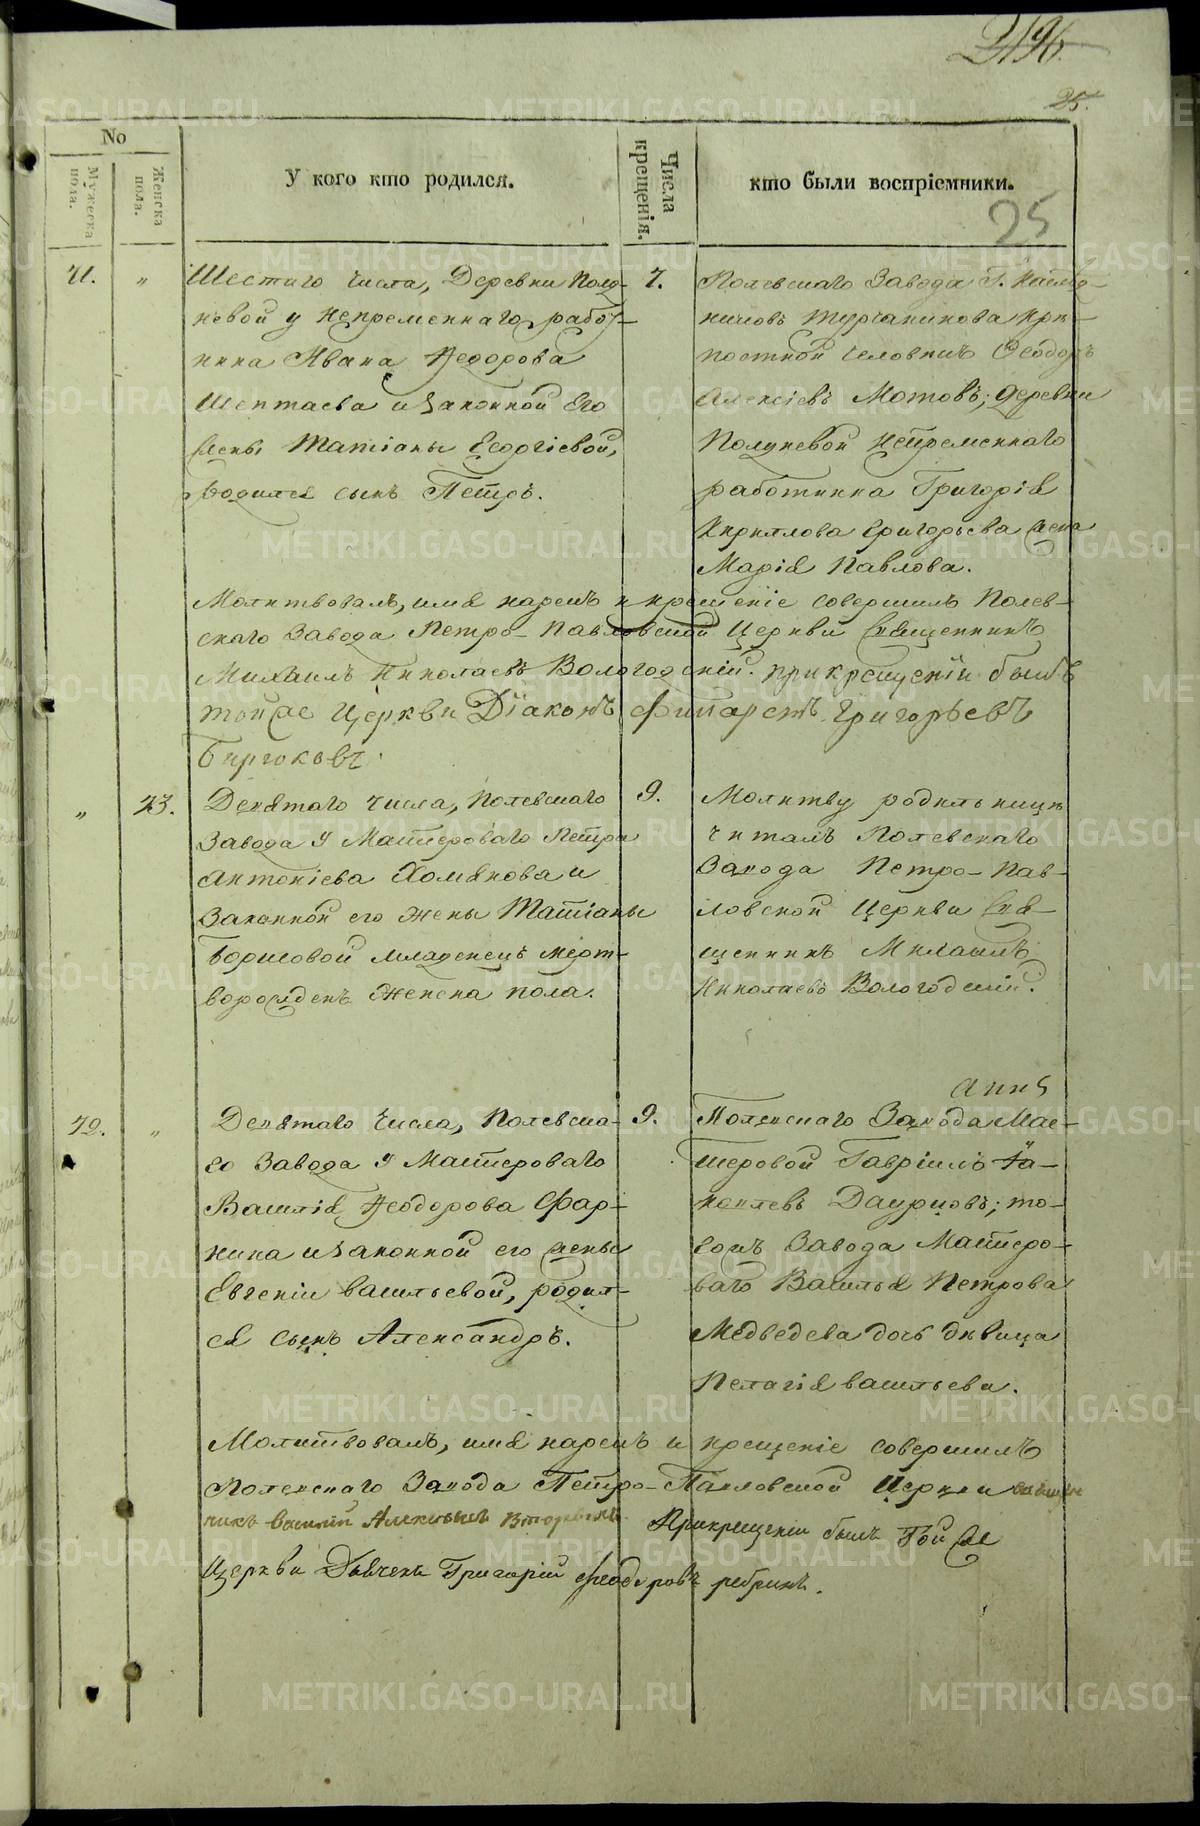 25.
No
Мужеска пола.
Женска пола.
У кого кто родился.
Числа крещенія.
кто были воспріемники.
25
71. " Шестаго числа, Деревни Полд-
невой у непременнаго работ-
ника Ивана Ѳеодорова
Шептаева и законной его
жены Татіаны Георгіевой,
родился сынъ Петръ.
7.
Полевскаго Завода Г. Наслѣд-
никовъ Турчанинова крѣ-
постной человѣкъ Ѳеодоръ
Алексіевъ Мотовъ; деревни
Полдневой непременнаго
работника Григорія
Кирилова Григорьева жена
Марія Павлова.
Молитвовалъ, имя нарекъ и крещеніе совершилъ Полев-
скаго Завода Петро-Павловской Церкви Священникъ
Михаилъ Николаевъ Вологодскій. при крещеніи былъ
тойже Церкви Діаконъ Филаретъ Григорьевъ
Бирюковъ.
" 23. Девятаго числа, Полевскаго
Завода у Мастероваго Петра
Антоніева Хомякова и
Законной его жены Татіаны
Борисовой младенецъ мерт-
ворожденъ женска пола.
9.
Молитву родильницѣ
читалъ Полевскаго
Завода Петро-Пав-
ловской Церкви Свя-
щенникъ Михаилъ
Николаевъ Вологодскій.
72. " Девятаго числа, Полевска-
го Завода у Мастероваго
Василія Ѳеодорова Фар-
нина и законной его жены
Евгеніи Васильевой, родил-
ся сынъ Александръ.
9.
Полевскаго Завода Мас-
теровой Гавріилъ
Даурцовъ; то-
гожъ Завода Мастеро-
ваго Василья Петрова
Медведева дочь дѣвица
Пелагія Васильева.
Молитвовалъ, имя нарекъ и крещеніе совершилъ
Полевскаго Завода Петро-Павловской Церкви священ
никъ Василій Алексѣевъ При крещеніи былъ той же
Церкви Дьячекъ Григорій Ѳеодоровъ
METRIKI.GASO-URAL.RU